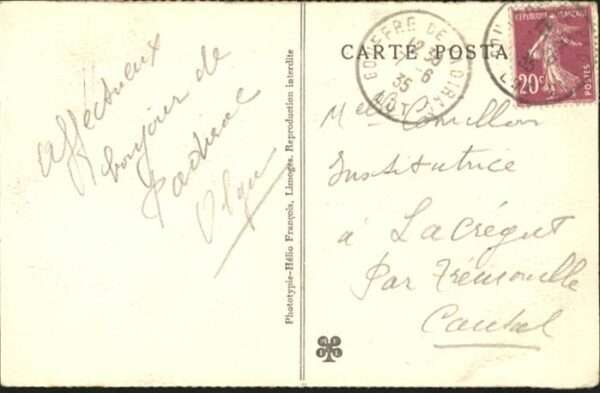 affectueux
bonjour de
Padirac
Olga
Phototypie-Hélio François, Limoges. Reproduction interdite
CARTE POSTA
GOUFFRE DE PADIRAC
6
35
LOT
RÉPUBLIQUE FRANÇAISE
POSTES
20c
Melle
Institutrice
à LaCrégut
Par Trémouille
Cantal